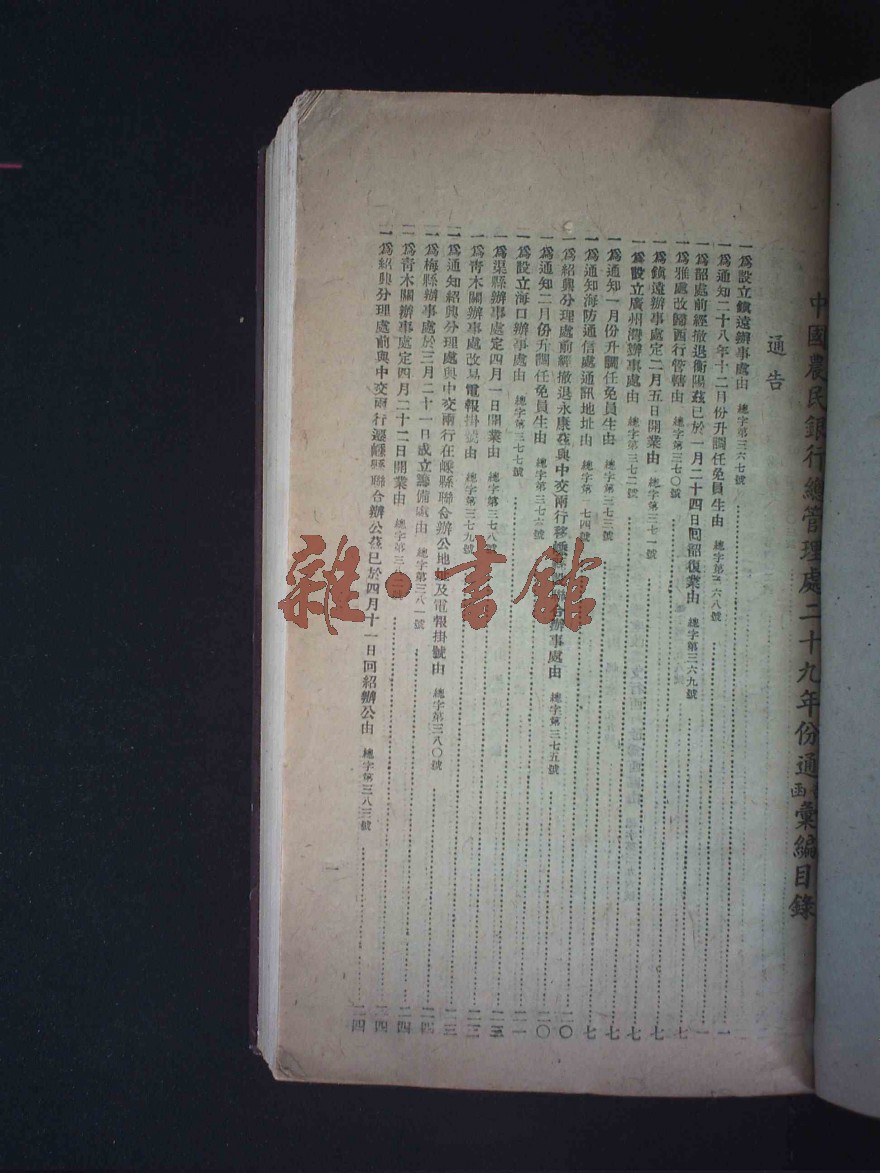 中國農民銀行總管理處二十九年份通函彙編目錄
通告
一爲設立鎮遠辦事處由 總字第三六七號 一
一爲通知二十八年十二月份升調任免員生由 總字第三六八號 一
一韶處前經撤退衡陽茲已於一月二十四日回韶復業由 總字第三六九號 一
一雅處改歸西行管轄由 總字第三七〇號 七
一鎮遠辦事處定二月五日開業由 總字第三七一號 七
一爲設立廣州灣辦事處由 總字第三七二號 七
一爲通知一月份升調任免員生由 總字第三七三號 七
一爲通知海防通信處通訊地址由 總字第 七四號 七
一爲紹興分理處前經撤退永康茲與中交兩行移 聯合辦事處由 總字第三七五號 二〇
一爲通知二月份升調任免員生由 總字第三七六號 二〇
一爲設立海口辦事處由 總字第三七七號 二一
一爲渠縣辦事處定四月一日開業由 總字第三七八號 二三
一爲青木關辦事處改易電報掛號由 總字第三七九號 二三
一爲通知紹興分理處與中交兩行在嵊縣聯合辦公地址及電報掛號由 總字第三八〇號 二三
一爲梅縣辦事處於三月二十一日成立籌備處由 總字第三八一號 二四
一爲青木關辦事處定四月二十二日開業由 總字第三八二號 二四
一爲紹興分理處前與中交兩行遷嵊縣聯合辦公茲已於四月十一日回紹辦公由 總字第三八三號 二四
二四
一
雜·書館